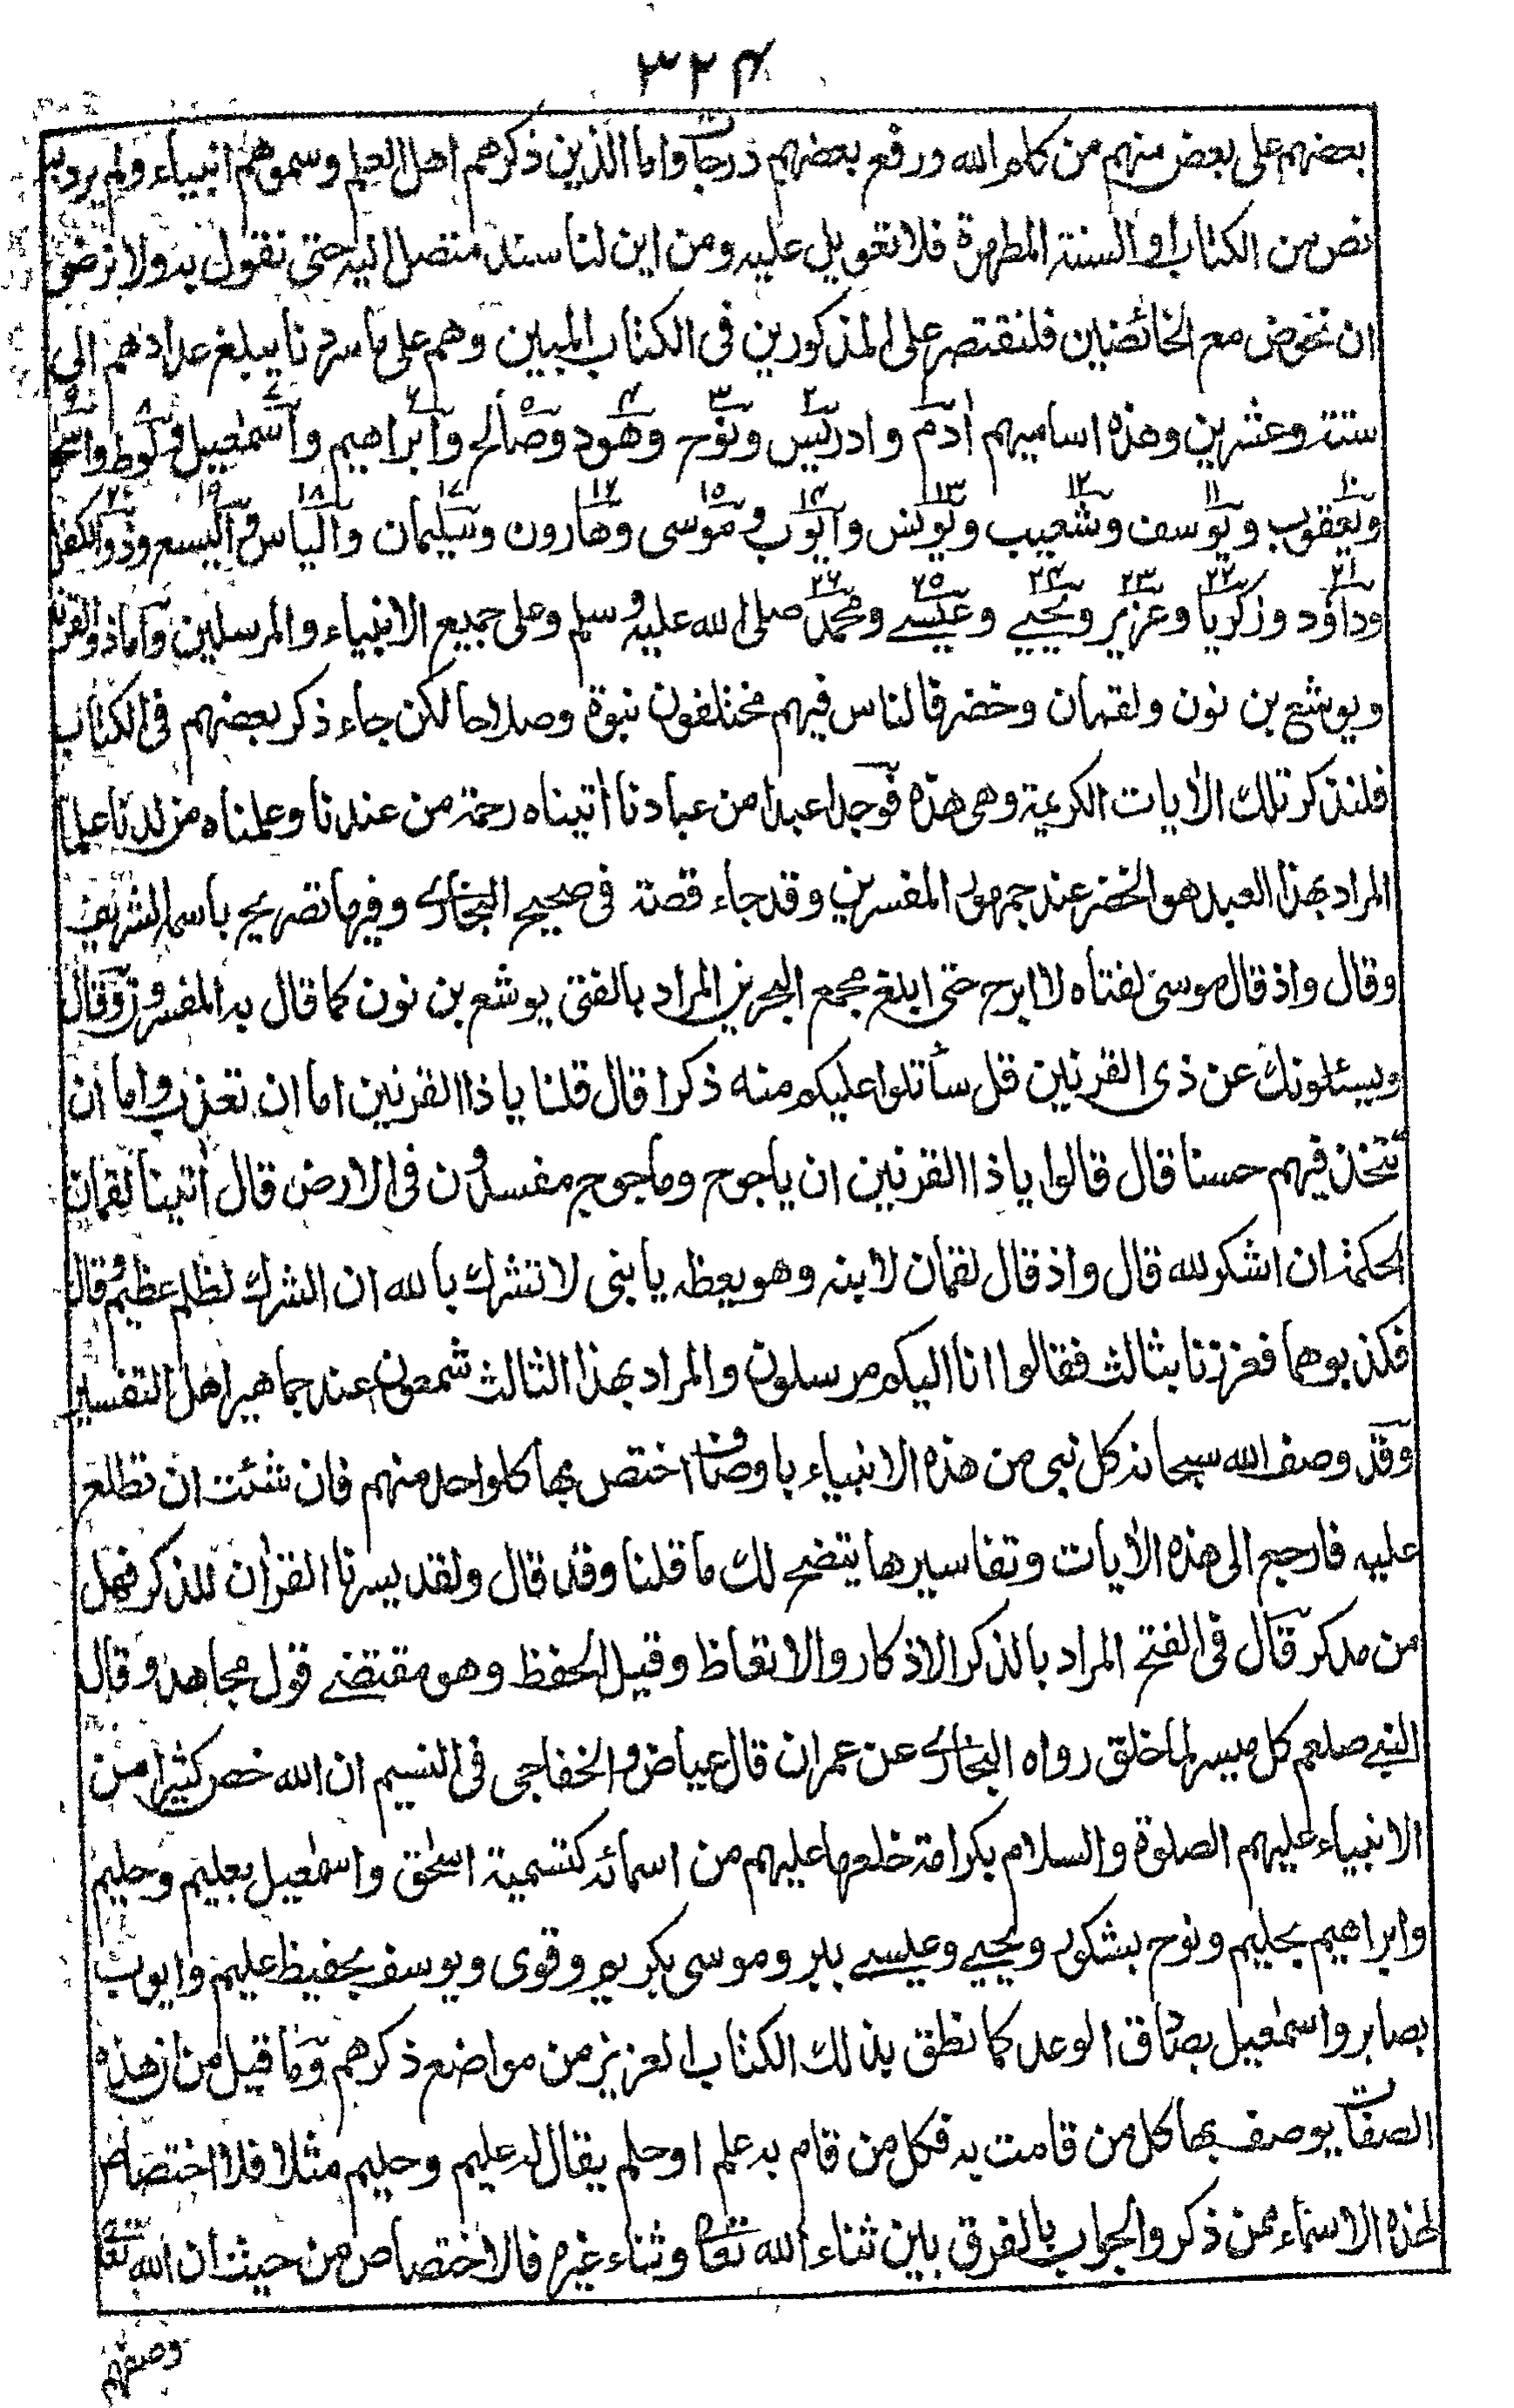 ٣٢٤
بعضهم على بعض منهم من كلم الله ورفع بعضهم درجات واما الذين ذكرهم اهل العلم وسموهم انبياء ولم يرد به
نص من الكتاب او السنة المطهرة فلا تعويل عليه ومن اين لنا سند متصل اليه حتى نقول به ولا نرضى
ان نخوض مع الخائضين فلنقتصر على المذكورين فى الكتاب المبين وهم على ما سردنا يبلغ عدادهم الى
ستة وعشرين وهذه اساميهم ادم ١ وادريس ٢ ونوح ٣ وهود ٤ وصالح ٥ وابراهيم ٦ واسمعيل ٧ ولوط ٨ واسحق ٩
ويعقوب ١٠ ويوسف ١١ وشعيب ١٢ ويونس ١٣ وايوب ١٤ وموسى ١٥ وهارون ١٦ وسليمان ١٧ والياس ١٨ واليسع ١٩ وذو الكفل ٢٠
وداود ٢١ وزكريا ٢٢ وعزير ٢٣ ويحيے ٢٤ وعيسے ٢٥ ومحمد ٢٦ صلى الله عليه وسلم وعلى جميع الانبياء والمرسلين واما ذو القرنين
ويوشع بن نون ولقمان وخضر فالناس فيهم مختلفون نبوة وصلاحا لكن جاء ذكر بعضهم فى الكتاب
فلنذكر تلك الاٰيات الكريمة وهى هذه فوجدا عبدا من عبادنا اٰتيناه رحمة من عندنا وعلمناه من لدنا علما
المراد بهذا العبد هو الخضر عند جمهور المفسرين وقد جاء قصته فى صحيح البخارى وفيها تصريح باسمه الشريف
وقال واذ قال موسى لفتاه لا ابرح حتى ابلغ مجمع البحرين المراد بالفتى يوشع بن نون كما قال به المفسرون وقال
ويسئلونك عن ذى القرنين قل سأتلوا عليكم منه ذكرا قال قلنا يا ذا القرنين اما ان تعذب واما ان
تتخذ فيهم حسنا قال قالوا يا ذا القرنين ان ياجوج وماجوج مفسدون فى الارض قال اٰتينا لقمان
الحكمة ان اشكر لله قال واذ قال لقمان لابنه وهو يعظه يا بنى لا تشرك بالله ان الشرك لظلم عظيم وقال
فكذبوهما فعززنا بثالث فقالوا انا اليكم مرسلون والمراد بهذا الثالث شمعون عند جماهير اهل التفسير
وقد وصف الله سبحانه كل نبى من هذه الانبياء باوصاف اختص بها كلواحد منهم فان شئت ان تطلع
عليه فارجع الى هذه الاٰيات وتفاسيرها يتضح لك ما قلنا وقد قال ولقد يسرنا القراٰن للذكر فهل
من مدكر قال فى الفتح المراد بالذكر الاذكار والاتعاظ وقيل الحفظ وهو مقتضے قول مجاهد وقال
النبے صلعم كل ميسر لما خلق رواه البخارى عن عمران قال عياض والخفاجى فى النسيم ان الله خص كثيرا من
الانبياء عليهم الصلوة والسلام بكرامة خلعها عليهم من اسمائه كتسمية اسحٰق واسمٰعيل بعليم وحليم
وابراهيم بحليم ونوح بشكور ويحيے وعيسے ببر وموسى بكريم وقوى ويوسف بحفيظ عليم وايوب
بصابر واسمٰعيل بصادق الوعد كما نطق بذلك الكتاب العزيز من مواضع ذكرهم وما قيل من ان هذه
الصفات يوصف بها كل من قامت به فكل من قام به علم او حلم يقال له عليم وحليم مثلا فلا اختصاص
لهذه الاسماء بمن ذكر والجواب بالفرق بين ثناء الله تعالى وثناء غيره فالاختصاص من حيث ان الله تعالى
وصفهم